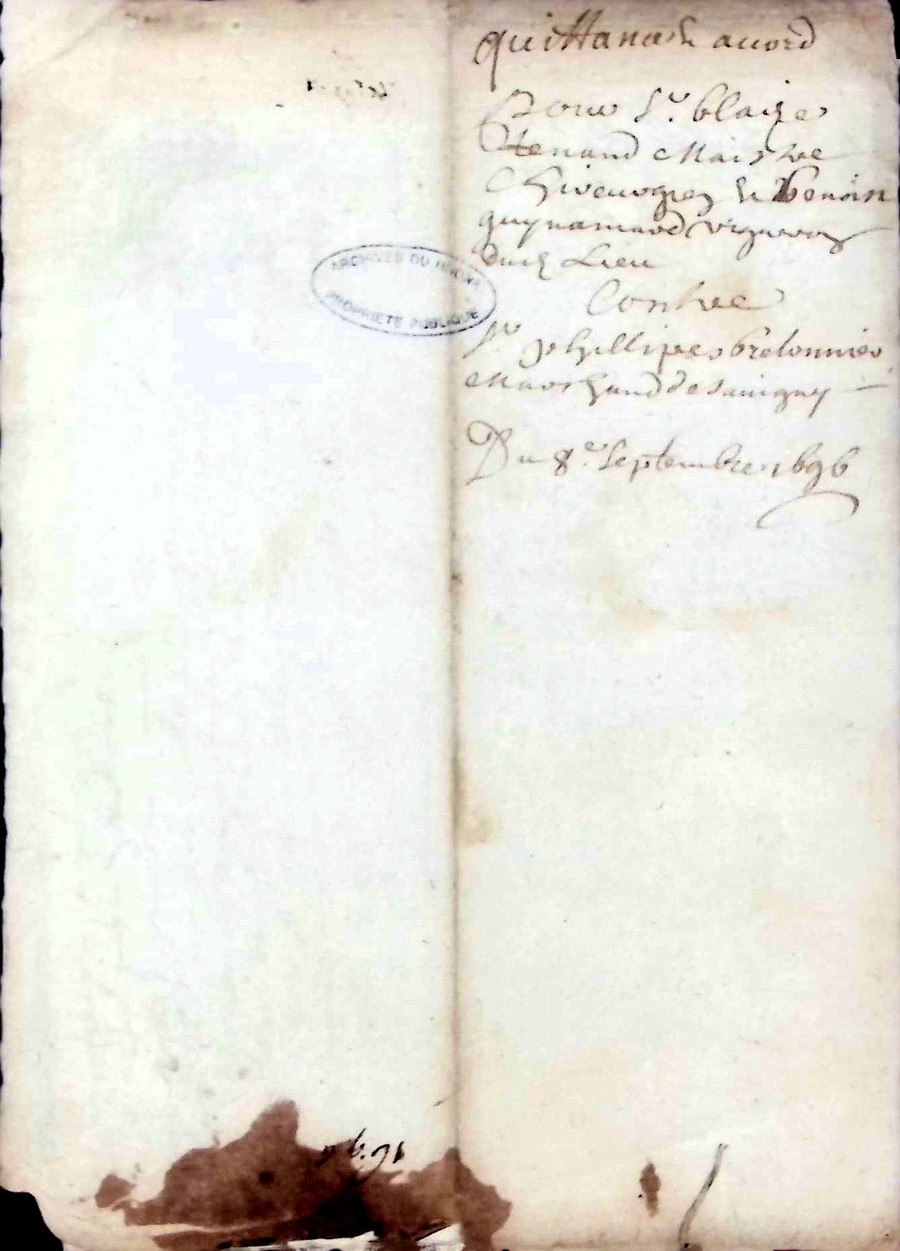 quittance & accord
Pour Sr. blaize
tenand Maistre
Chirurgien & benoist
guynamard vigneron
dud Lieu
Contre
Sr. phillipes bretonnier
Marchand de Savigny
Du 8e. Septembre 1696
ARCHIVES DU RHÔNE
PROPRIÉTÉ PUBLIQUE